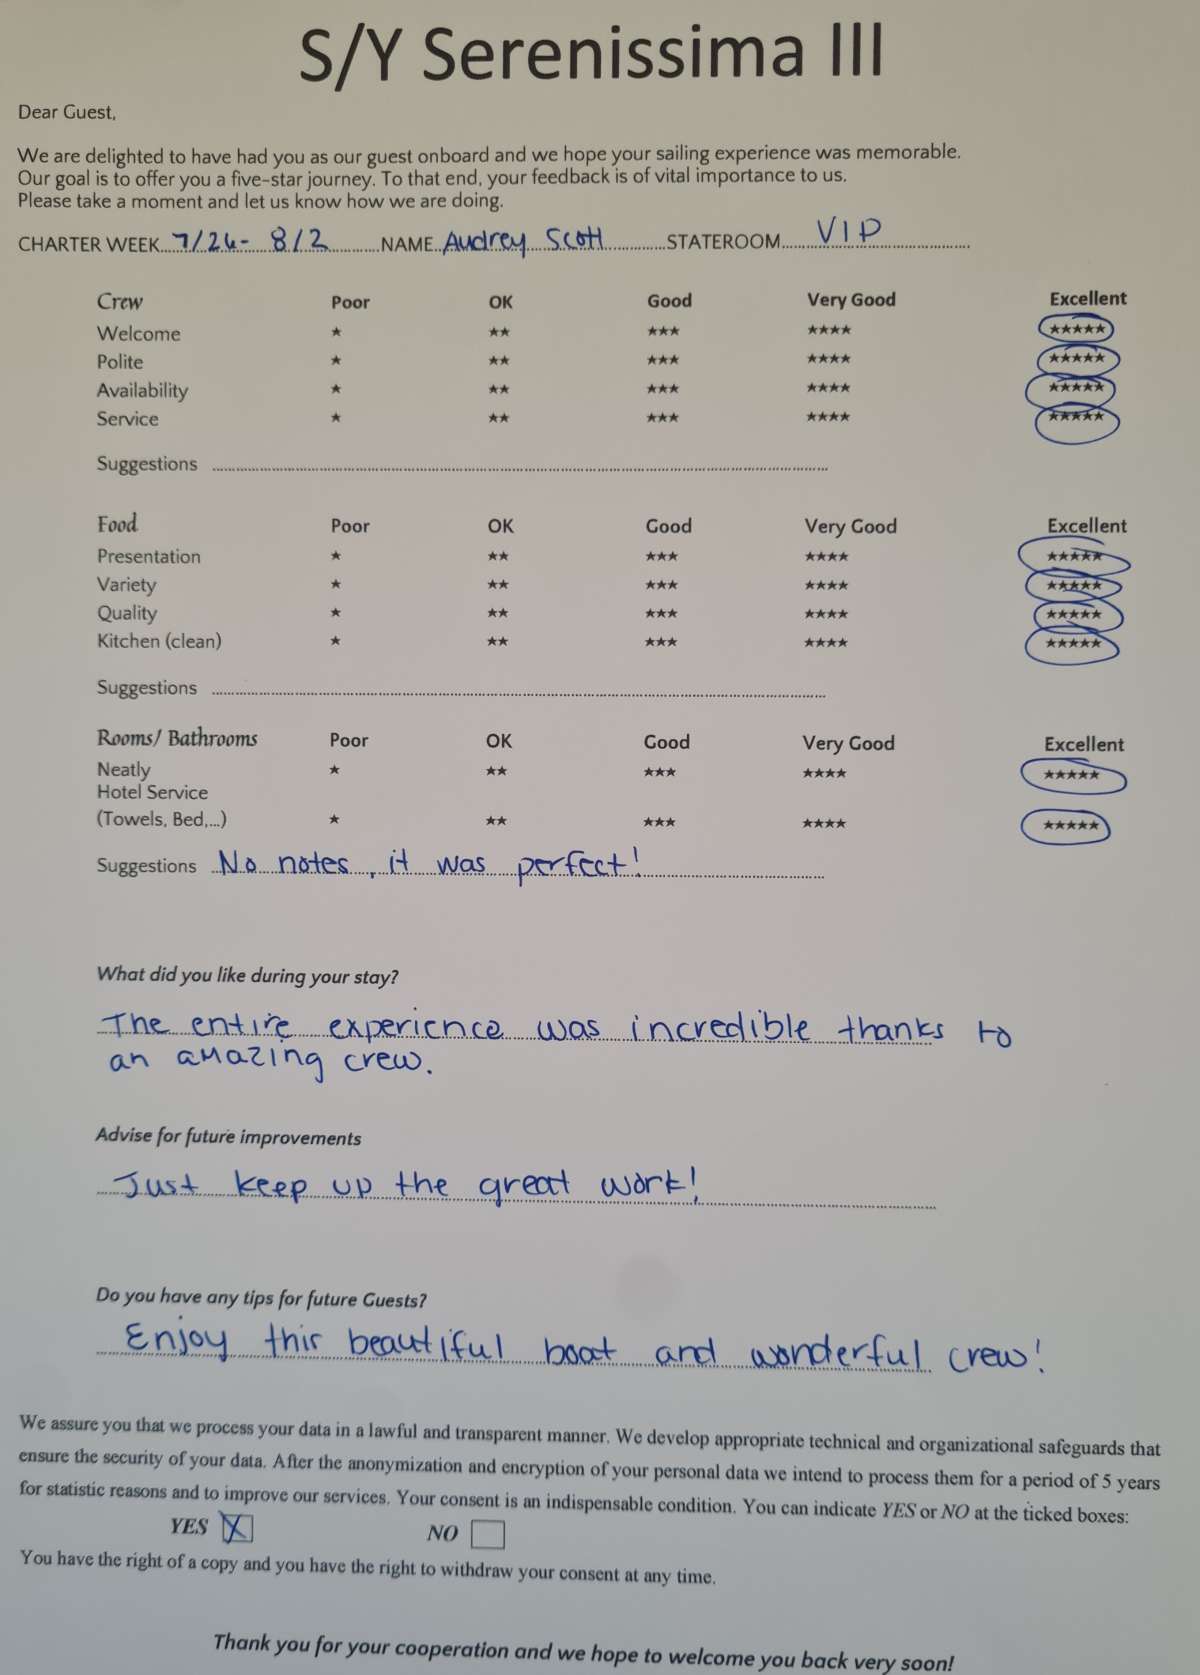 S/Y Serenissima III
Dear Guest,
We are delighted to have had you as our guest onboard and we hope your sailing experience was memorable.
Our goal is to offer you a five-star journey. To that end, your feedback is of vital importance to us.
Please take a moment and let us know how we are doing.
CHARTER WEEK 7/26- 8/2 NAME Audrey Scott STATEROOM VIP
Crew Poor OK Good Very Good Excellent
Welcome ★ ★★ ★★★ ★★★★ ★★★★★
Polite ★ ★★ ★★★ ★★★★ ★★★★★
Availability ★ ★★ ★★★ ★★★★ ★★★★★
Service ★ ★★ ★★★ ★★★★ ★★★★★
Suggestions
Food Poor OK Good Very Good Excellent
Presentation ★ ★★ ★★★ ★★★★ ★★★★★
Variety ★ ★★ ★★★ ★★★★ ★★★★★
Quality ★ ★★ ★★★ ★★★★ ★★★★★
Kitchen (clean) ★ ★★ ★★★ ★★★★ ★★★★★
Suggestions
Rooms/ Bathrooms Poor OK Good Very Good Excellent
Neatly ★ ★★ ★★★ ★★★★ ★★★★★
Hotel Service
(Towels, Bed,...) ★ ★★ ★★★ ★★★★ ★★★★★
Suggestions No notes, it was perfect!
What did you like during your stay?
The entire experience was incredible thanks to
an amazing crew.
Advise for future improvements
Just keep up the great work!
Do you have any tips for future Guests?
Enjoy this beautiful boat and wonderful crew!
We assure you that we process your data in a lawful and transparent manner. We develop appropriate technical and organizational safeguards that
ensure the security of your data. After the anonymization and encryption of your personal data we intend to process them for a period of 5 years
for statistic reasons and to improve our services. Your consent is an indispensable condition. You can indicate YES or NO at the ticked boxes:
YES X NO
You have the right of a copy and you have the right to withdraw your consent at any time.
Thank you for your cooperation and we hope to welcome you back very soon!